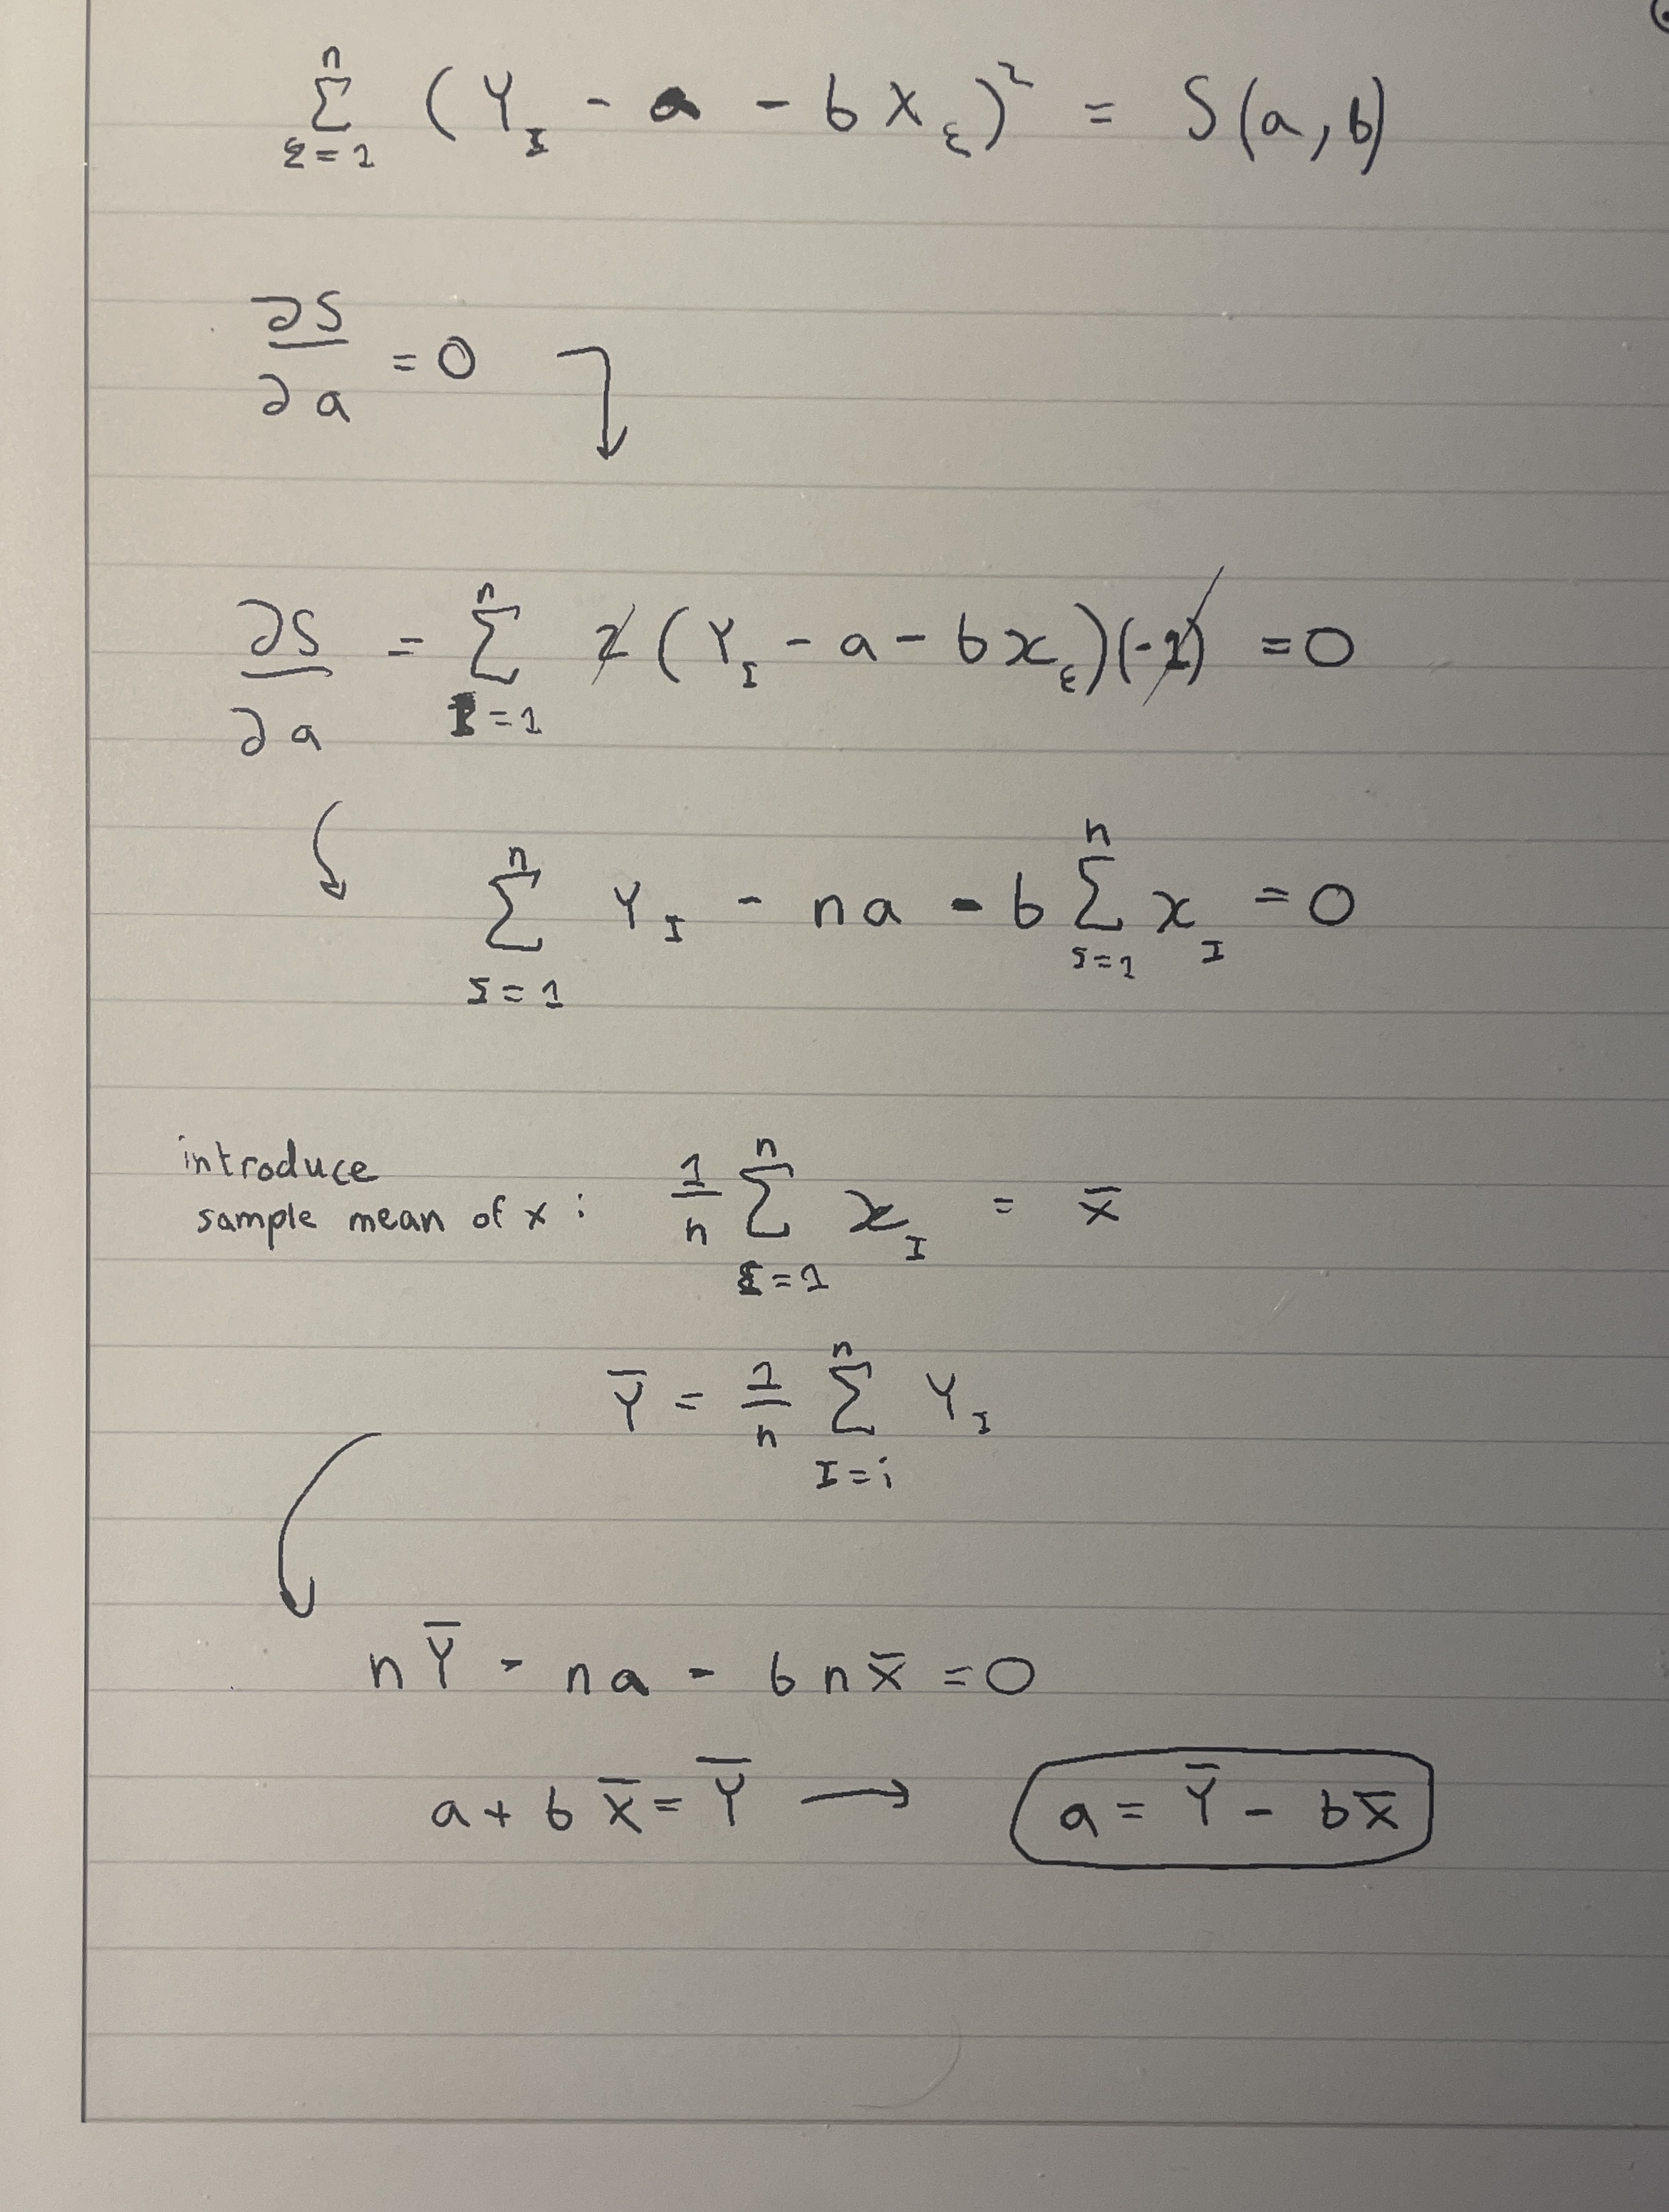 ∑_{I=1}^{n} (Y_I - a - bX_I)² = S(a,b)
∂S/∂a = 0
∂S/∂a = ∑_{I=1}^{n} 2(Y_I - a - bx_I)(-1) = 0
∑_{I=1}^{n} Y_I - na - b∑_{I=1}^{n} x_I = 0
introduce
sample mean of x : 1/n ∑_{I=1}^{n} x_I = x̄
Ȳ = 1/n ∑_{I=i}^{n} Y_I
nȲ - na - bnx̄ = 0
a + bx̄ = Ȳ → a = Ȳ - bx̄